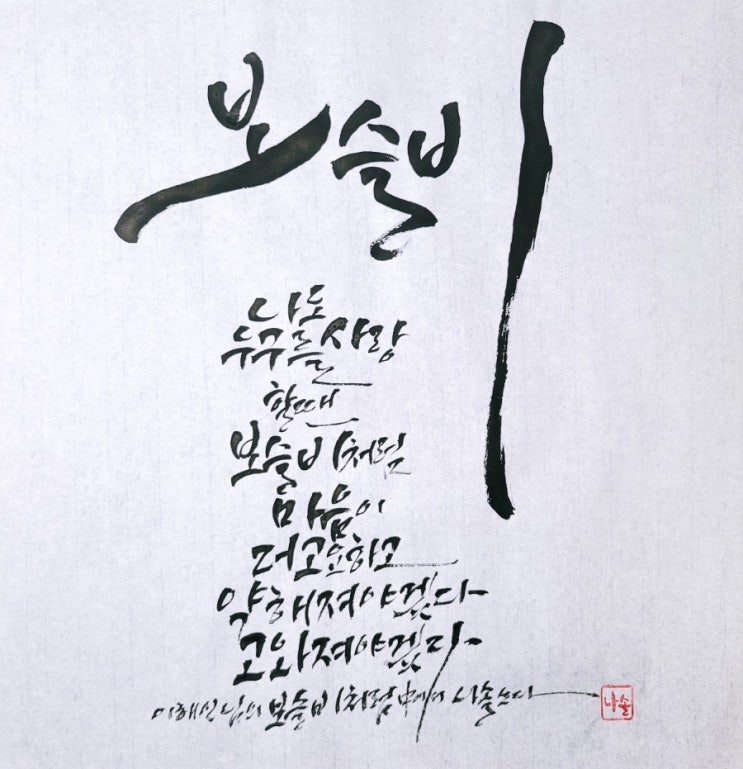 보슬비
나도
누구를 사랑
할때
보슬비처럼
마음이
더 고요하고
약해져야겠다
고와져야겠다
이해인님의 보슬비처럼 中에서 나솔쓰다
나솔